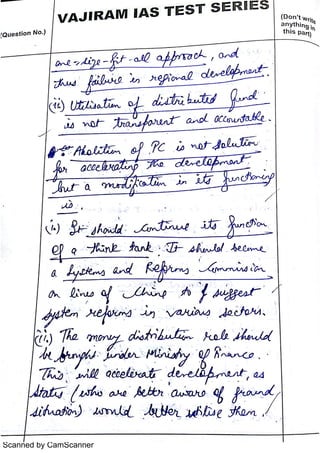 VAJIRAM IAS TEST SERIES
(Question No.)
(Don't write
anything in
this part)
one-size-fit-all approach, and
thus failure in regional development.
(ii) Utilisation of distributed fund
is not transparent and accountable.
Abolition of PC is not solution
for accelerating the development
but a modification in its functioning
is.
(i) It should continue its function
of a think tank. It should become
a Systems and Reforms Commission
on lines of China to suggest
system reforms in various sectors.
(ii) The money distribution role should
be brought under Ministry of Finance.
This will accelerate development, as
States (who are better aware of ground
situation) would better utilise them.
Scanned by CamScanner